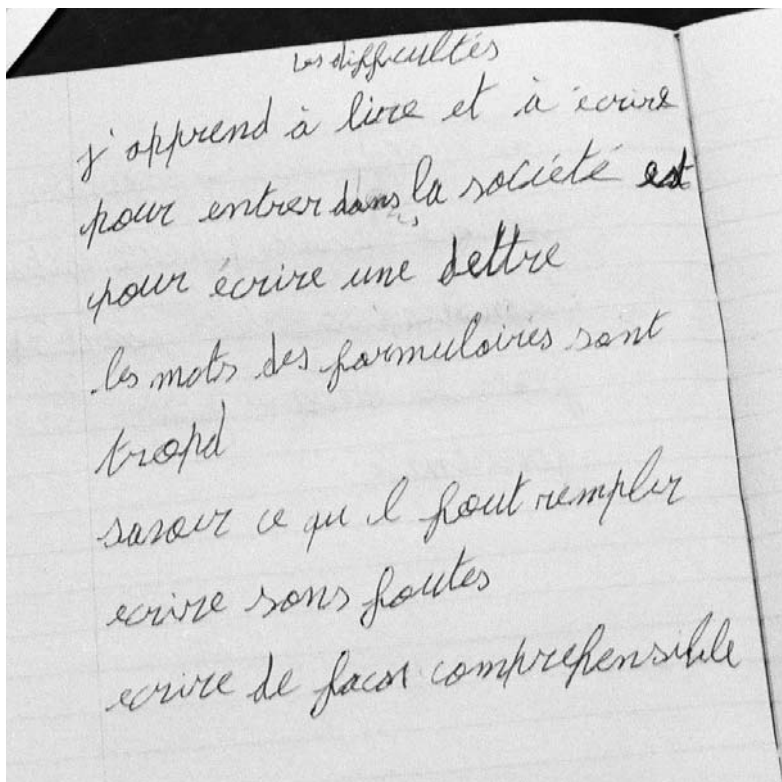 Les difficultés
j'apprend à lire et à écrire
pour entrer dans la société est
pour écrire une lettre
les mots des formulaires sont
tropd
savoir ce qu il faut remplir
ecrire sans fautes
ecrire de facon comprehensible